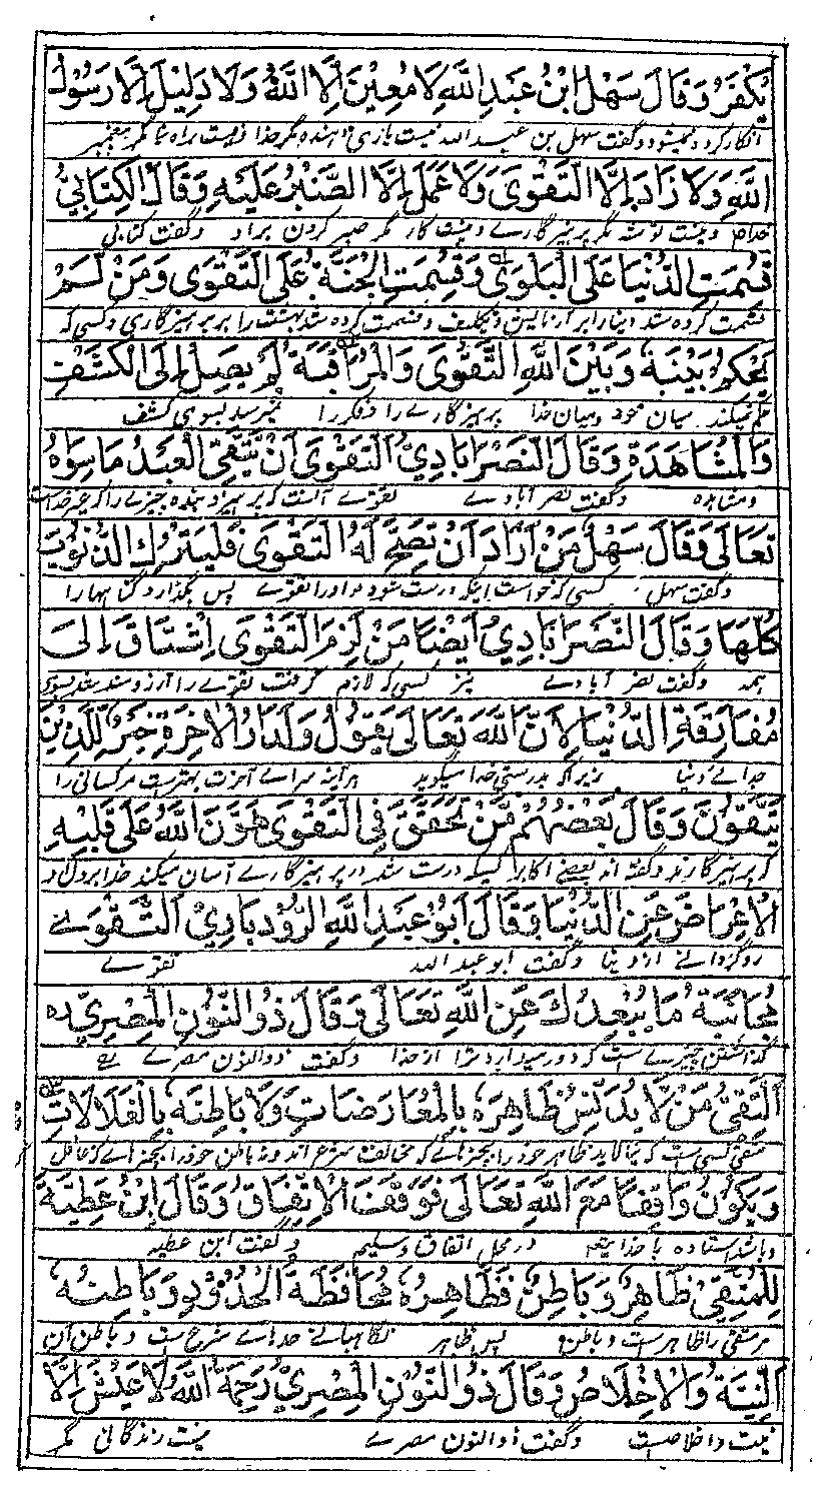 يُكْفَرُ وَقَالَ سَهْلُ ابْنُ عَبْدِ اللَّهِ لَا مُعِيْنَ إِلَّا اللَّهُ وَلَا دَلِيْلَ إِلَّا رَسُوْلُ
انکار کرده نمیشود و گفت سهل بن عبد الله نیست یاری دهنده مگر خدا و نیست راه نما مگر پیغمبر
اللَّهِ وَلَا زَادَ إِلَّا التَّقْوَى وَلَا عَمَلَ إِلَّا الصَّبْرُ عَلَيْهِ وَقَالَ الْكِتَابِيُّ
خدا و نیست توشه مگر پرهیزگارے و نیست کار مگر صبر کردن براو و گفت کتابی
قُسِمَتِ الدُّنْيَا عَلَى الْبَلْوَى وَقُسِمَتِ الْجَنَّةُ عَلَى التَّقْوَى وَمَنْ لَمْ
قسمت کرده شد دنیا را بر آزمایش و تکلیف و قسمت کرده شد بهشت را بر پرهیزگاری و کسی که
يَحْكُمْ بَيْنَهُ وَبَيْنَ اللَّهِ التَّقْوَى وَالْمُرَاقَبَةَ لَمْ يَصِلْ إِلَى الْكَشْفِ
حکم نمیکند میان خود و میان خدا پرهیزگارے را و فکر را نمیرسد بسوی کشف
وَالْمُشَاهَدَةِ وَقَالَ النَّصْرَابَادِيُّ التَّقْوَى أَنْ يَّتَّقِيَ الْعَبْدُ مَا سِوَاهُ
و مشاهده و گفت نصرآبادے تقوے آنست که پرهیزد بنده چیزے را که غیر خداست
تَعَالَى وَقَالَ سَهْلُ مَنْ أَرَادَ أَنْ تَصِحَّ لَهُ التَّقْوَى فَلْيَتْرُكِ الذُّنُوْبَ
و گفت سهل کسی که خواست اینکه درست شود مر او را تقوے پس بگذارد گناهها را
كُلَّهَا وَقَالَ النَّصْرَابَادِيُّ أَيْضًا مَنْ لَزِمَ التَّقْوَى اشْتَاقَ إِلَى
همه و گفت نصرآبادے نیز کسی که لازم گرفت تقوے را آرزومند شد بسوی
مُفَارَقَةِ الدُّنْيَا لِأَنَّ اللَّهَ تَعَالَى يَقُوْلُ وَلَدَارُ الْآخِرَةِ خَيْرٌ لِّلَّذِيْنَ
جدائے دنیا زیرا که بدرستی خدا میگوید هر آینه سراے آخرت بهترست مر کسانی را
يَتَّقُوْنَ وَقَالَ بَعْضُهُمْ مَّنْ تَحَقَّقَ فِي التَّقْوَى هَوَّنَ اللَّهُ عَلَى قَلْبِهِ
که پرهیزگارند و گفته اند بعضے اکابر کسیکه درست شد در پرهیزگارے آسان میکند خدا بر دل او
الْإِعْرَاضَ عَنِ الدُّنْيَا وَقَالَ أَبُوْ عَبْدِ اللَّهِ الرُّوْدبَارِيُّ التَّقْوٰے
روگردانے از دنیا و گفت ابو عبد الله تقوے
مُجَانَبَةُ مَا يُبْعِدُكَ عَنِ اللَّهِ تَعَالَى وَقَالَ ذُو النُّوْنِ الْمِصْرِيُّ
گذاشتن چیزے است که دور میدارد ترا از خدا و گفت ذوالنون مصرے
اَلتَّقِيُّ مَنْ لَّا يُدَنِّسُ ظَاهِرَهُ بِالْمُعَارَضَاتِ وَلَا بَاطِنَهُ بِالْغَلَالَاتِ
متقی کسی است که نیالاید ظاهر خود را بچیزهائے که مخالف شرع اند و نه باطن خود را بچیزهائے که غافل
وَيَكُوْنُ وَاقِفًا مَعَ اللَّهِ تَعَالَى مَوْقِفَ الْإِتِّفَاقِ وَقَالَ ابْنُ عَطِيَّةَ
و باشد استاده با خدایتعالی در محل اتفاق و تسلیم و گفت ابن عطیه
لِلْمُتَّقِيْ ظَاهِرٌ وَبَاطِنٌ فَظَاهِرُهُ مُحَافَظَةُ الْحُدُوْدِ وَبَاطِنُهُ
مر متقی را ظاهرست و باطن پس ظاهر نگاهبانے حدهاے شرع ست و باطن آن
النِّيَّةُ وَالْإِخْلَاصُ وَقَالَ ذُو النُّوْنِ الْمِصْرِيُّ رَحِمَهُ اللَّهُ لَا عَيْشَ إِلَّا
نیت و اخلاصست و گفت ذوالنون مصرے نیست زندگانی مگر